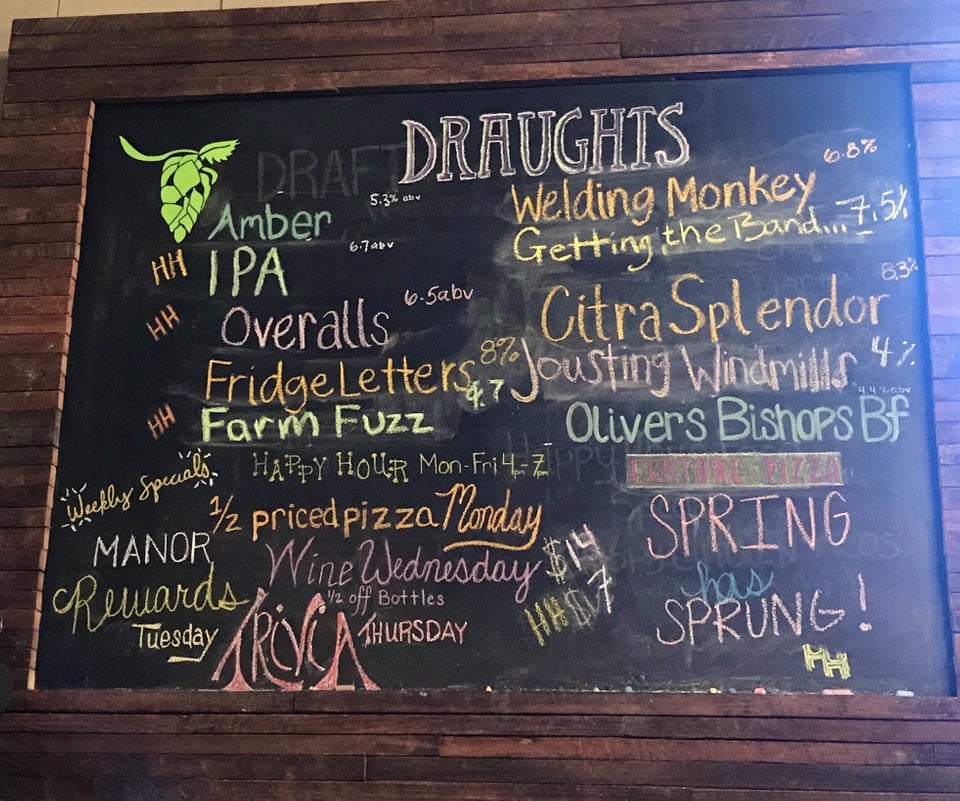 DRAUGHTS
DRAFT
Amber 5.3% abv
HH IPA 6.7 abv
HH Overalls 6.5 abv
Fridge Letters 8%
HH Farm Fuzz 4.7
Welding Monkey 6.8%
Getting the Band... 7.5%
Citra Splendor 8.3%
Jousting Windmills 4%
Olivers Bishops Bf 4.4% abv
HAPPY HOUR Mon-Fri 4-7
Weekly Specials
1/2 priced pizza Monday
MANOR
Rewards
Tuesday
Wine Wednesday
1/2 off Bottles
TRIVIA THURSDAY
$14
HH $7
FEATURE PIZZA
SPRING
has
SPRUNG!
HH